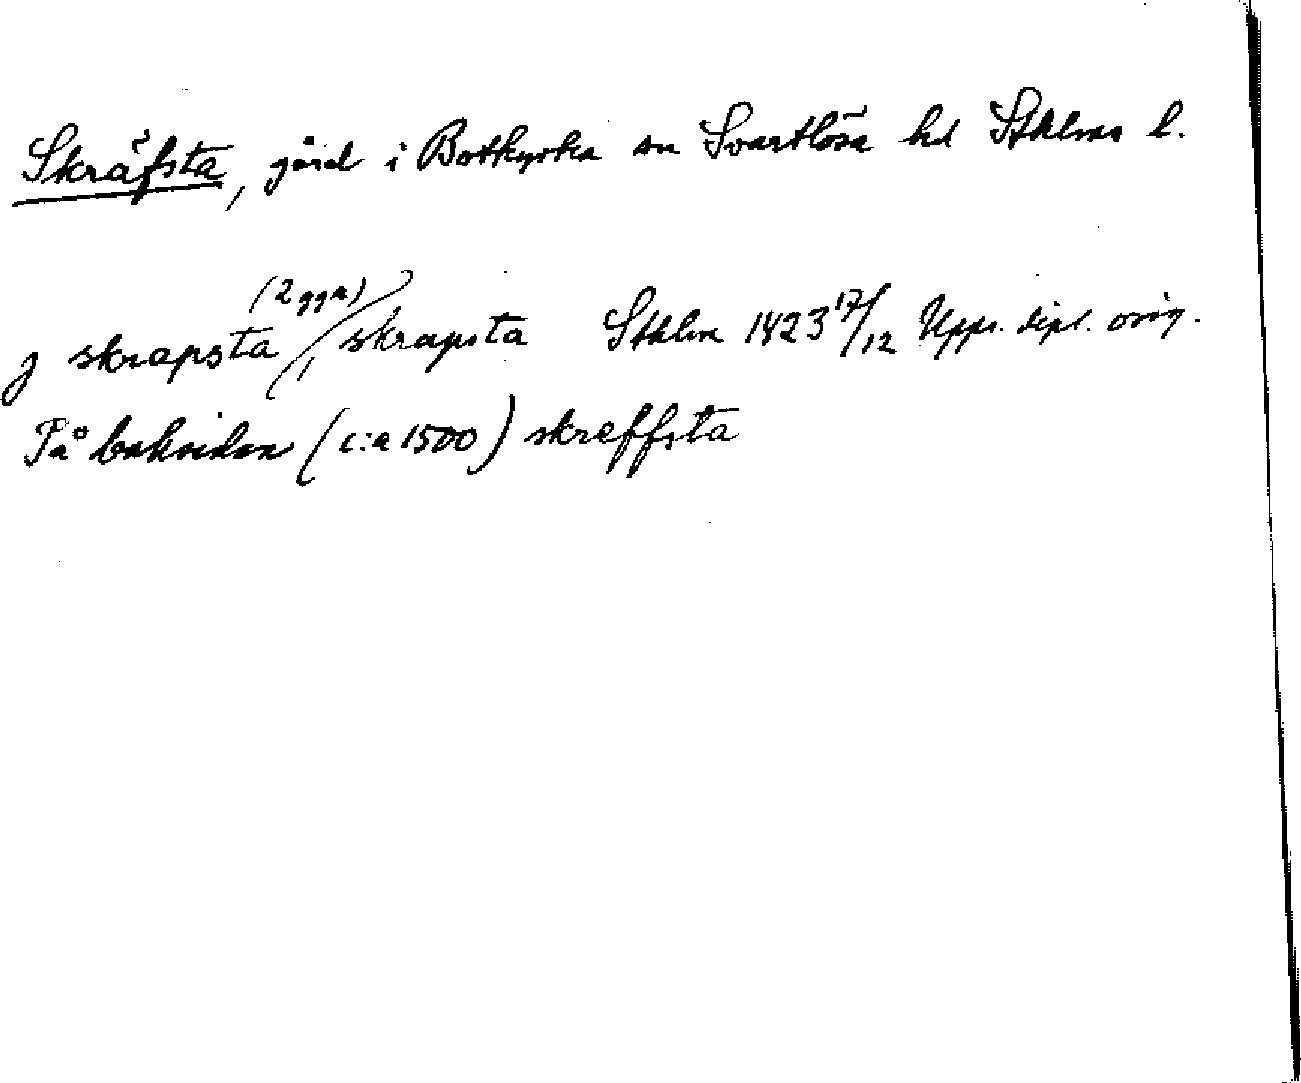 Skräfsta, gård i Botkyrka sn Svartlösa hd Sthlms l.
(2 ggr)
j skrapsta / skrapsta Sthlm 1423 17/12 Upps. dipl. orig.
På baksidan (c:a 1500) skreffsta